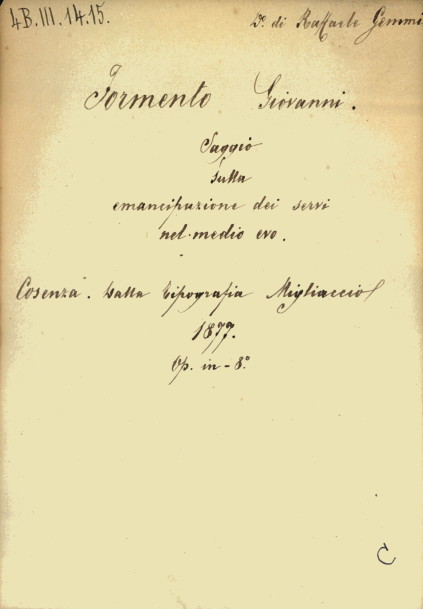 4B.III.14.15.
D.° di Raffaele Gemmi
Formento Giovanni.
Saggio
Sulla
emancipazione dei servi
nel medio evo.
Cosenza. Dalla Tipografia Migliaccio
1877.
Op. in-8.°
C